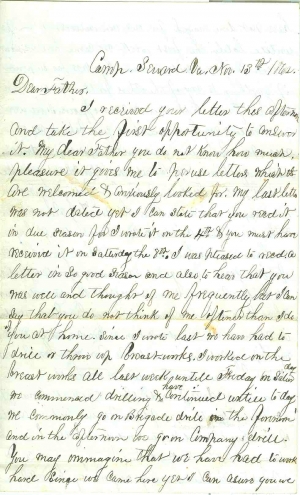 Camp Seward Va. Nov. 13th 1862.
Dear Father,
I recived your letter this afternoon
and take the first oppertunity to answer
it. My dear Father you do not know how much
pleasure it gives me to peruse letters which
are welcomed & anxiously looked for. My last letter
was not dated yet I can state that you recd it
in due season for I wrote it on the 4th & you must have
received it on Saturday the 8th. I was pleased to recd a
letter in so good season and also to hear that you
was well and thought of me frequently but I can
say that you do not think of me oftener than I do
you at home. Since I wrote last we have had to
drill or throw up Breastworks. I worked on the
breast works all last week untill Friday
we commenced drilling & have continued untill to day
we commonly go on Brigade drill in the forenoon
and in the afternoon we go on Company drill.
You may immagine that we have had to work
hard since we came here yet I can asure you we